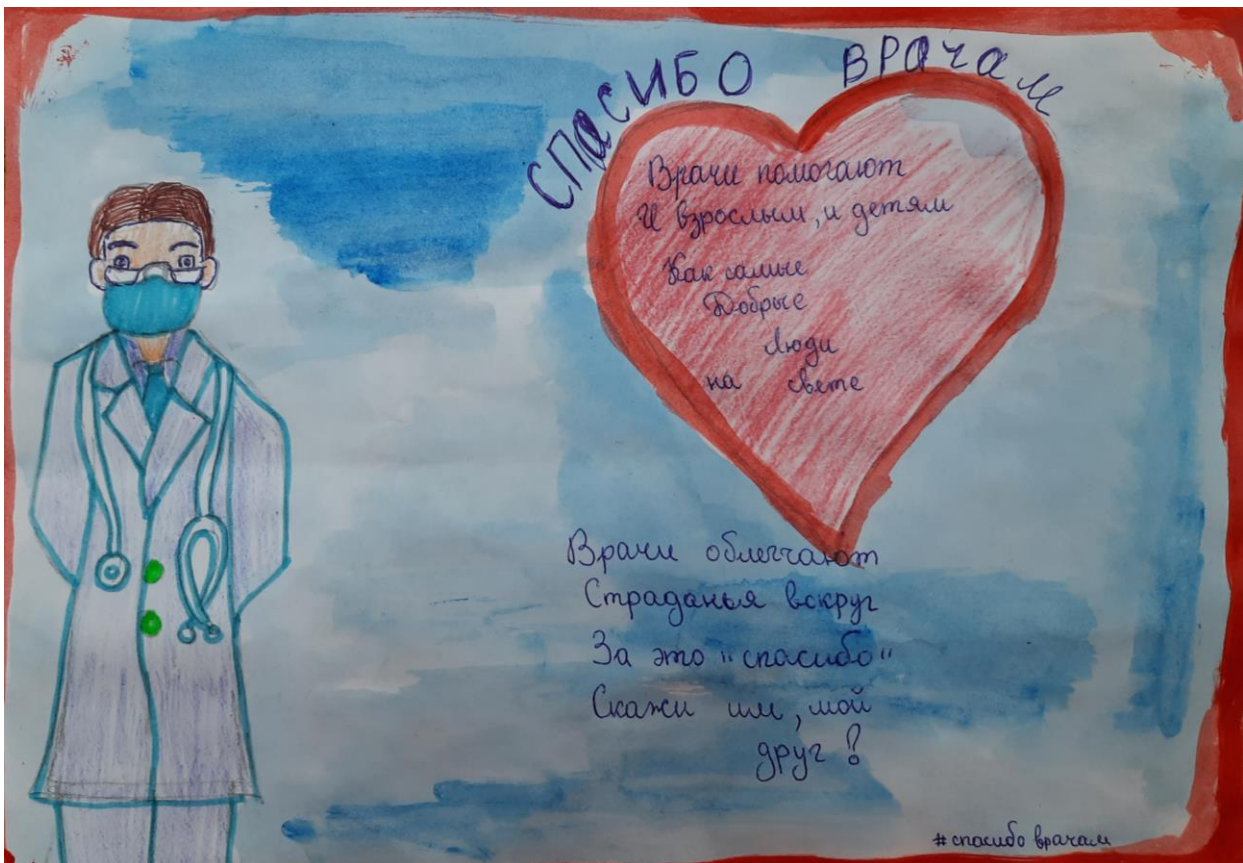 СПАСИБО ВРАЧАМ
Врачи помогают
И взрослым, и детям
Как самые
Добрые
люди
на свете
Врачи облегчают
Страданья вокруг
За это "спасибо"
Скажи им, мой
друг!
#спасибо врачам